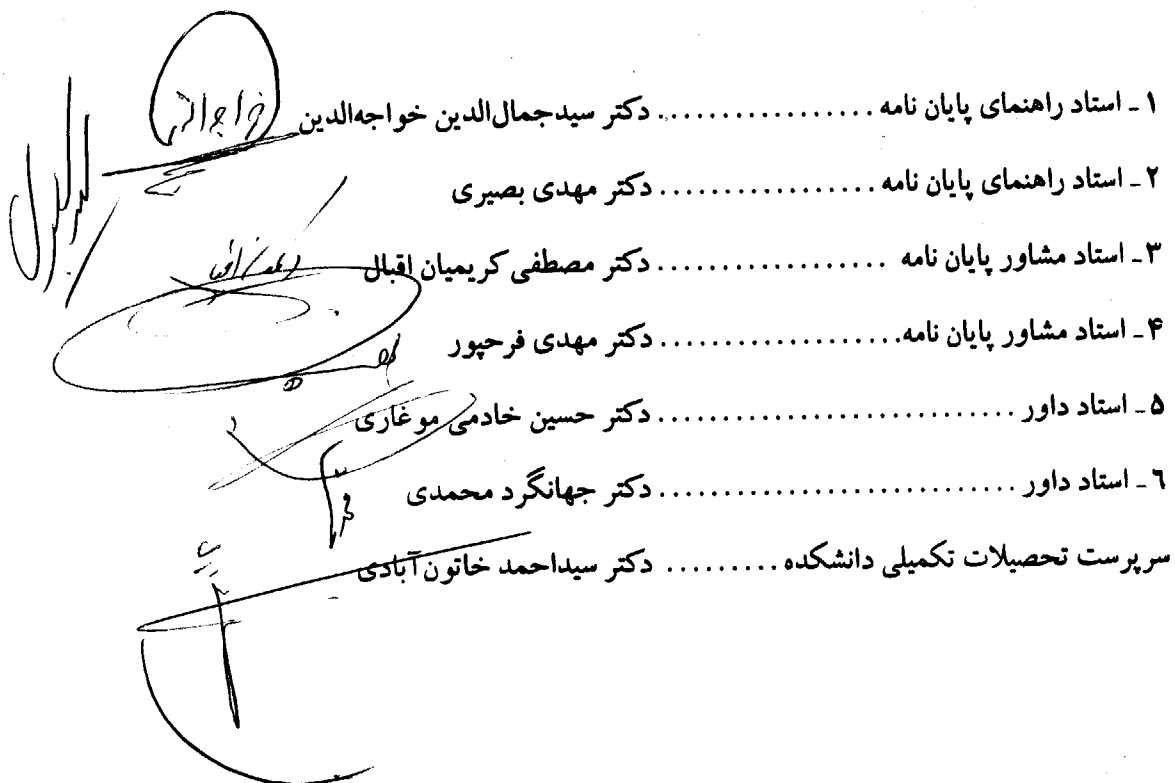 ۱ ـ استاد راهنمای پایان نامه .................. دکتر سیدجمال‌الدین خواجه‌الدین
۲ ـ استاد راهنمای پایان نامه .................. دکتر مهدی بصیری
۳ ـ استاد مشاور پایان نامه .................. دکتر مصطفی کریمیان اقبال
۴ ـ استاد مشاور پایان نامه .................. دکتر مهدی فرحپور
۵ ـ استاد داور ........................... دکتر حسین خادمی موغاری
۶ ـ استاد داور ........................... دکتر جهانگرد محمدی
سرپرست تحصیلات تکمیلی دانشکده ......... دکتر سیداحمد خاتون‌آبادی